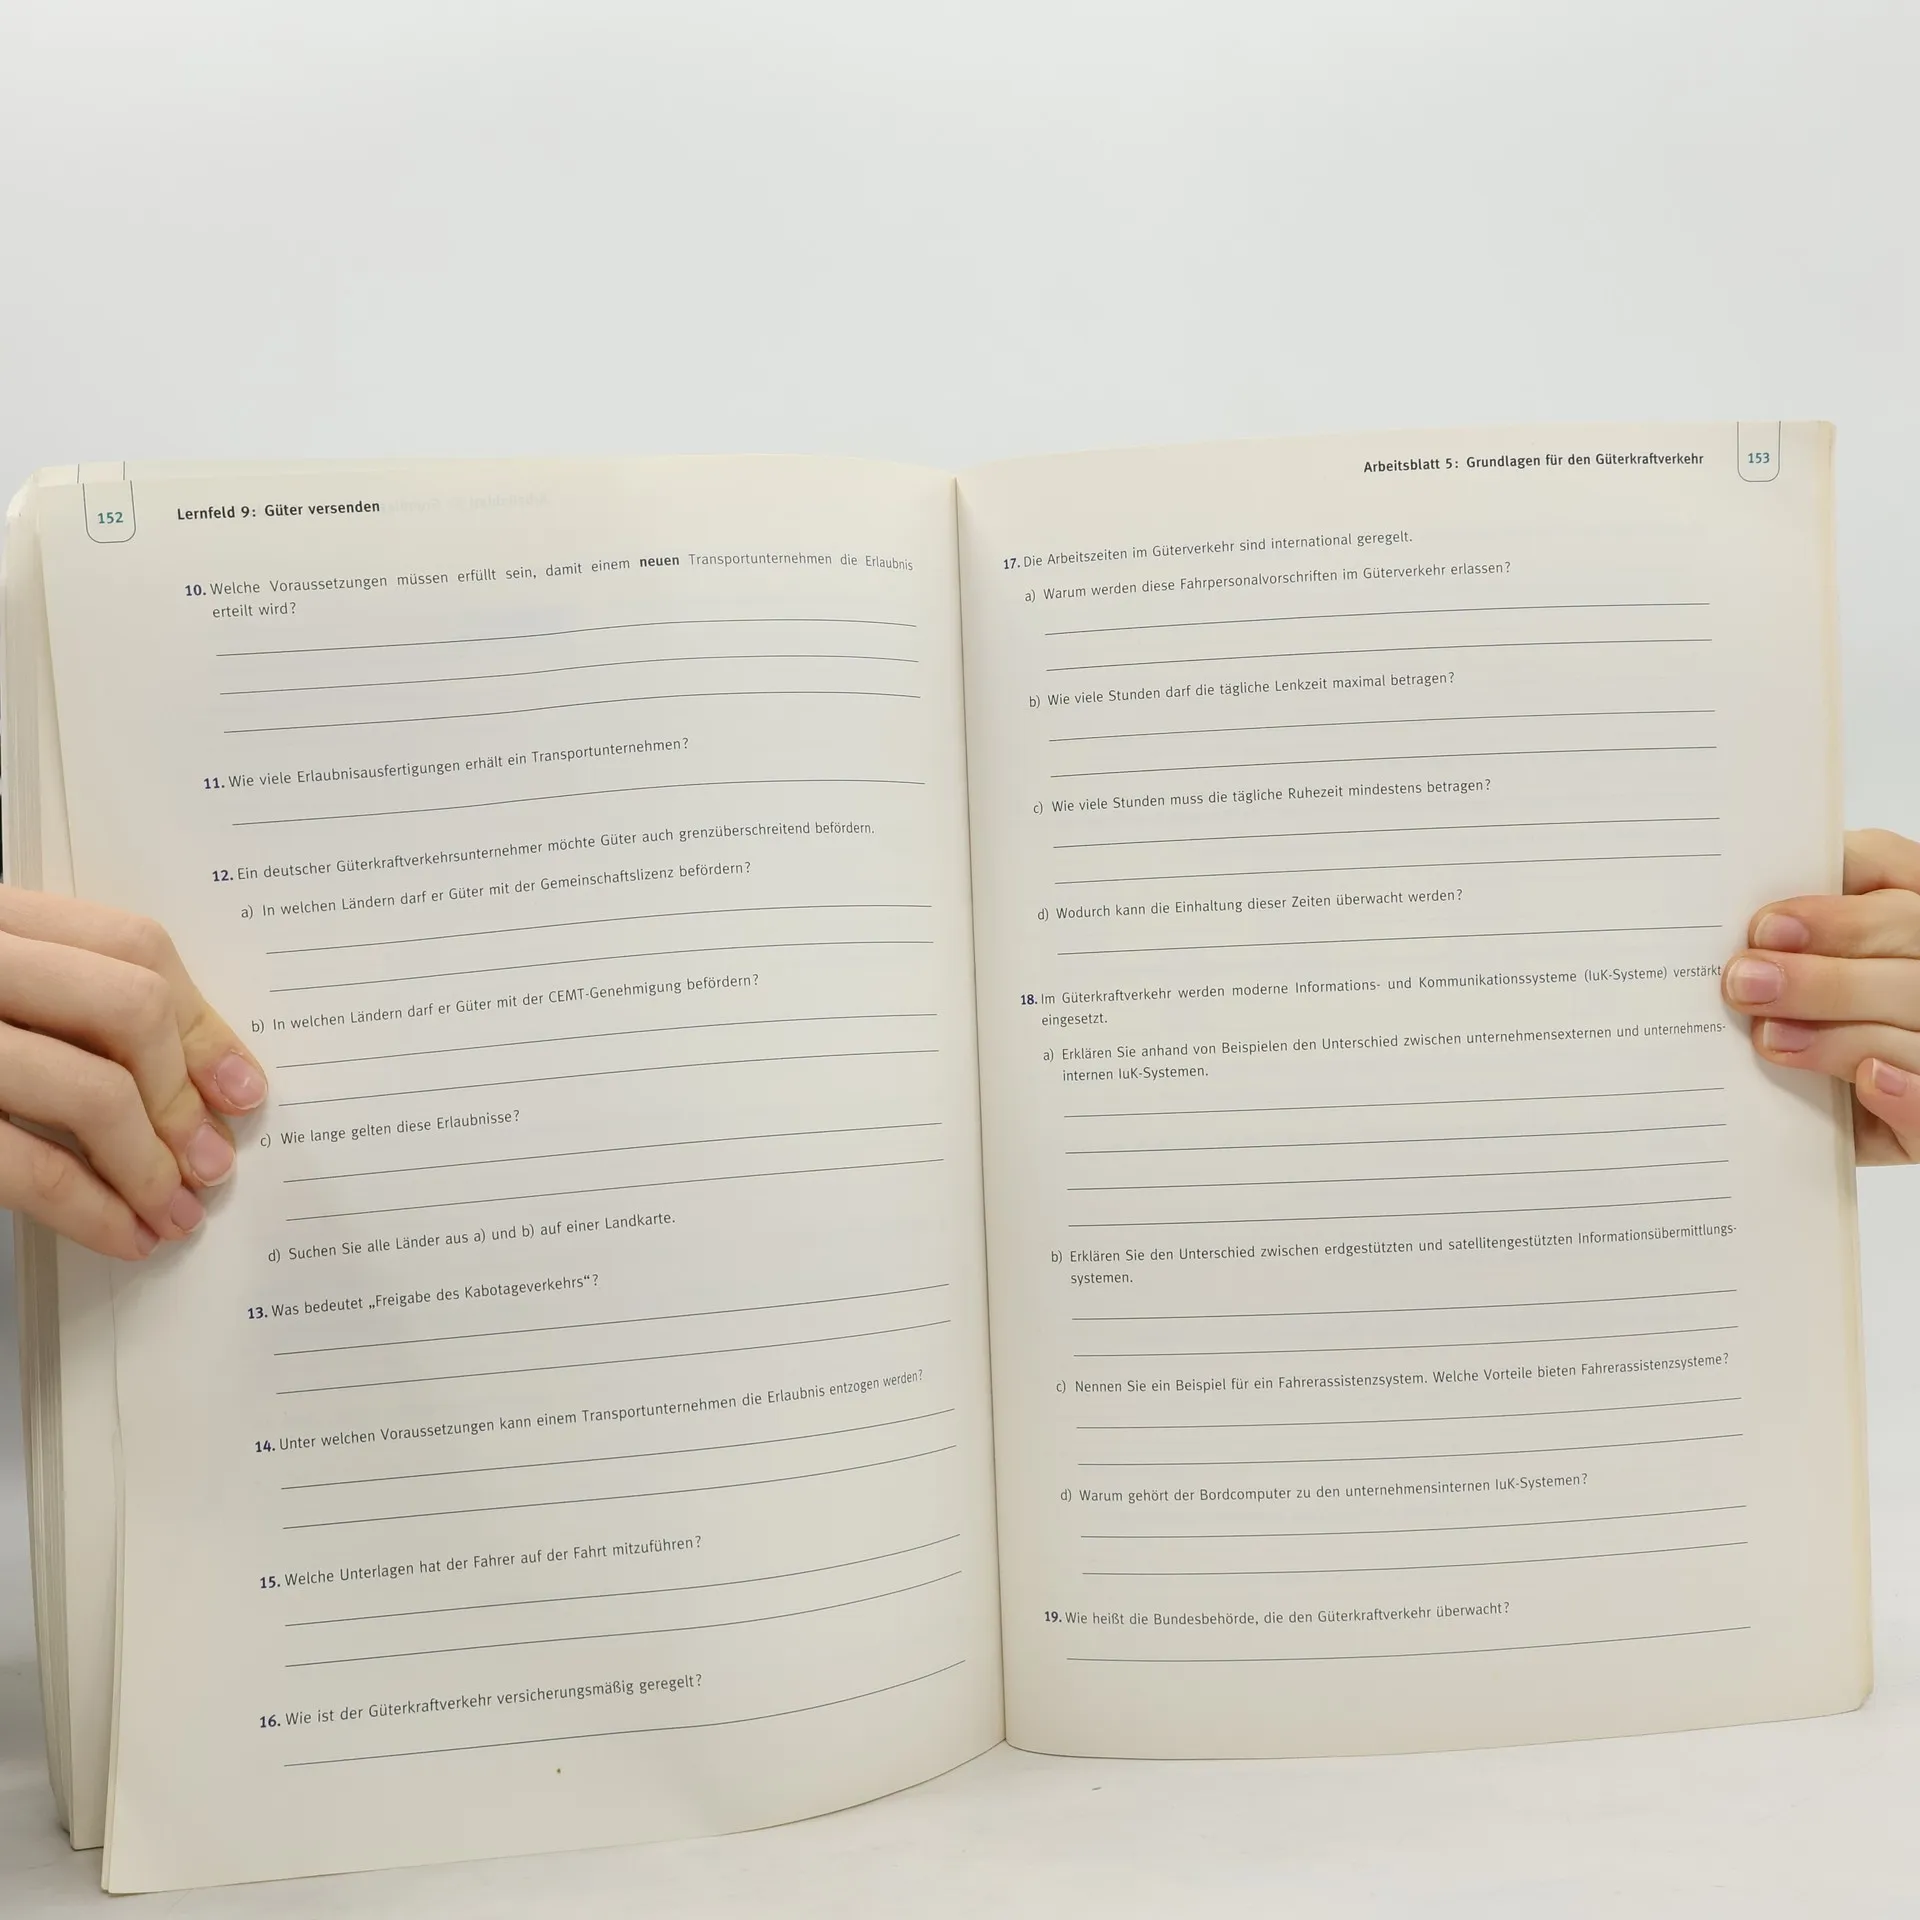 152
Lernfeld 9: Güter versenden
10. Welche Voraussetzungen müssen erfüllt sein, damit einem neuen Transportunternehmen die Erlaubnis
erteilt wird?
11. Wie viele Erlaubnisausfertigungen erhält ein Transportunternehmen?
12. Ein deutscher Güterkraftverkehrsunternehmer möchte Güter auch grenzüberschreitend befördern.
a) In welchen Ländern darf er Güter mit der Gemeinschaftslizenz befördern?
b) In welchen Ländern darf er Güter mit der CEMT-Genehmigung befördern?
c) Wie lange gelten diese Erlaubnisse?
d) Suchen Sie alle Länder aus a) und b) auf einer Landkarte.
13. Was bedeutet „Freigabe des Kabotageverkehrs“?
14. Unter welchen Voraussetzungen kann einem Transportunternehmen die Erlaubnis entzogen werden?
15. Welche Unterlagen hat der Fahrer auf der Fahrt mitzuführen?
16. Wie ist der Güterkraftverkehr versicherungsmäßig geregelt?
Arbeitsblatt 5: Grundlagen für den Güterkraftverkehr
153
17. Die Arbeitszeiten im Güterverkehr sind international geregelt.
a) Warum werden diese Fahrpersonalvorschriften im Güterverkehr erlassen?
b) Wie viele Stunden darf die tägliche Lenkzeit maximal betragen?
c) Wie viele Stunden muss die tägliche Ruhezeit mindestens betragen?
d) Wodurch kann die Einhaltung dieser Zeiten überwacht werden?
18. Im Güterkraftverkehr werden moderne Informations- und Kommunikationssysteme (IuK-Systeme) verstärkt
eingesetzt.
a) Erklären Sie anhand von Beispielen den Unterschied zwischen unternehmensexternen und unternehmens-
internen IuK-Systemen.
b) Erklären Sie den Unterschied zwischen erdgestützten und satellitengestützten Informationsübermittlungs-
systemen.
c) Nennen Sie ein Beispiel für ein Fahrerassistenzsystem. Welche Vorteile bieten Fahrerassistenzsysteme?
d) Warum gehört der Bordcomputer zu den unternehmensinternen IuK-Systemen?
19. Wie heißt die Bundesbehörde, die den Güterkraftverkehr überwacht?